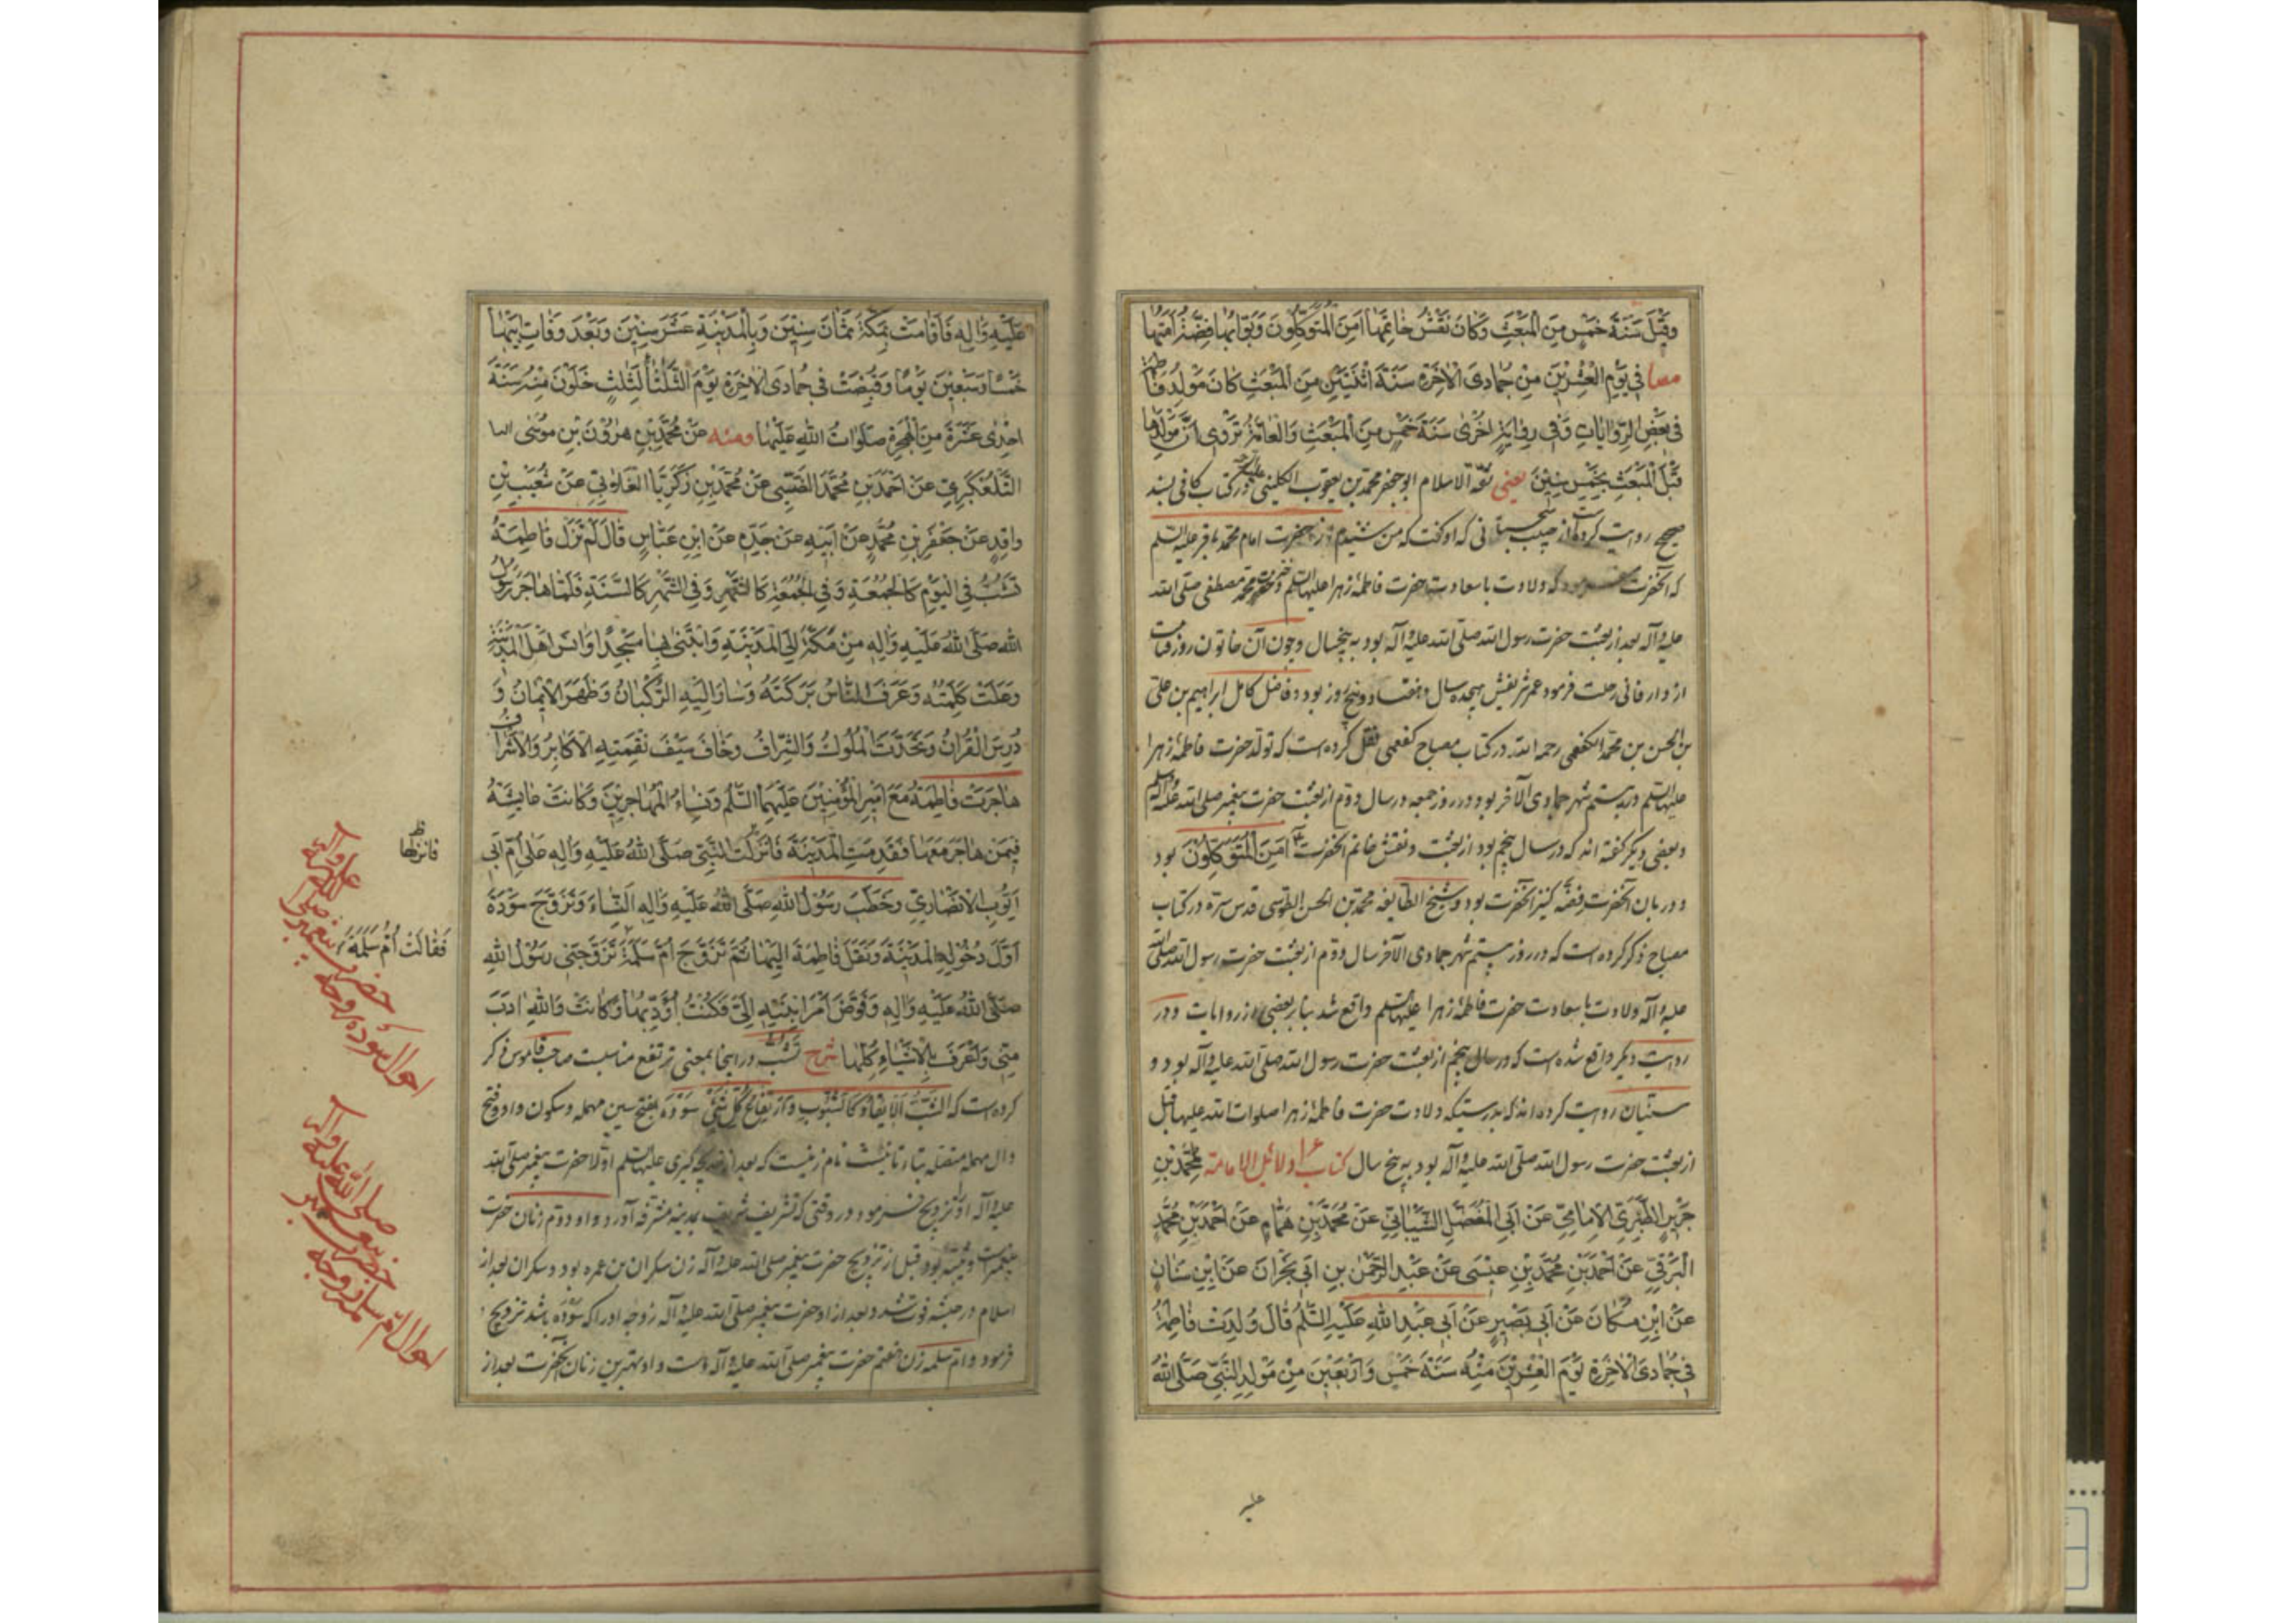 وقبل سَنَةَ خَمْسٍ مِنَ الْمَبْعَثِ وَكَانَ نَقْشُ خَاتَمِهَا اَمِنَ الْمُتَوَكِّلُونَ وَبَوّابُها فِضَّةُ اَمَتُها
مصبا فِي يَوْمِ الْعِشْرِينَ مِنْ جُمَادَى الْاٰخِرَةِ سَنَةَ اثْنَتَيْنِ مِنَ الْمَبْعَثِ كَانَ مَوْلِدُ فَاطِمَةَ
فِي بَعْضِ الرِّوَايَاتِ وَفِي رِوَايَةٍ اُخْرٰى سَنَةَ خَمْسٍ مِنَ الْمَبْعَثِ وَالْعَامَّةُ تَرْوِي اَنَّ مَوْلِدَهَا
قَبْلَ الْمَبْعَثِ بِخَمْسِ سِنِينَ يعنى ثقة الاسلام ابو جعفر محمد بن يعقوب الكلينى در كتاب كافى بسند
صحيح روايت كرده است از حبيب سجستانى كه او گفت كه من شنيدم از حضرت امام محمد باقر عليه السلم
كه آنحضرت فرمود كه ولادت با سعادت حضرت فاطمۀ زهرا عليها السلم دختر حضرت محمد مصطفى صلى الله
عليه و آله بعد از بعثت حضرت رسول الله صلى الله عليه و آله بود به پنجسال و چون آن خاتون روز قيامت
از دار فانى رحلت فرمود عمر شريفش هيجده سال و هفتاد و پنج روز بود و فاضل كامل ابراهيم بن على
بن الحسن بن محمد الكفعمى رحمه الله در كتاب مصباح كفعمى نقل كرده است كه تولد حضرت فاطمۀ زهرا
عليها السلم در بيستم شهر جمادى الآخر بود در روز جمعه در سال دوم از بعثت حضرت پيغمبر صلى الله عليه و آله و سلم
و بعضى ديگر گفته اند كه در سال پنجم بود از بعثت و نقش خاتم آنحضرت اَمِنَ الْمُتَوَكِّلُونَ بود
و دربان آنحضرت فضّه كنيز آنحضرت بود و شيخ الطايفه محمد بن الحسن الطوسى قدس سره در كتاب
مصباح ذكر كرده است كه در روز بيستم شهر جمادى الآخر سال دوم از بعثت حضرت رسول الله صلى الله
عليه و آله ولادت با سعادت حضرت فاطمۀ زهرا عليها السلم واقع شد بنا بر بعضى از روايات و در
روايت ديگر واقع شده است كه در سال پنجم از بعثت حضرت رسول الله صلى الله عليه و آله بود و
سنّيان روايت كرده اند كه بدرستيكه ولادت حضرت فاطمۀ زهرا صلوات الله عليها قبل
از بعثت حضرت رسول الله صلى الله عليه و آله بود به پنج سال كتاب دلائل الامامة لمحمد بن
جَرِيرٍ الطَّبَرِيِّ الْاِمَامِيِّ عَنْ اَبِي الْمُفَضَّلِ الشَّيْبَانِيِّ عَنْ مُحَمَّدِ بْنِ هَمَّامٍ عَنْ اَحْمَدَ بْنِ مُحَمَّدٍ
الْبَرْقِيِّ عَنْ اَحْمَدَ بْنِ مُحَمَّدِ بْنِ عِيسَى عَنْ عَبْدِ الرَّحْمٰنِ بن اَبِي نَجْرَانَ عَنْ ابْنِ سَنَانٍ
عَنْ ابْنِ مُسْكَانَ عَنْ اَبِي بَصِيرٍ عَنْ اَبِي عَبْدِ اللهِ عَلَيْهِ السَّلَمُ قَالَ وُلِدَتْ فَاطِمَةُ
فِي جُمَادَى الْاٰخِرَةِ يَوْمَ الْعِشْرِينَ مِنْهُ سَنَةَ خَمْسٍ وَاَرْبَعِينَ مِنْ مَوْلِدِ النَّبِيِّ صَلَّى اللهُ
عليه
عَلَيْهِ وَاٰلِهِ فَاَقَامَتْ بِمَكَّةَ ثَمَانَ سِنِينَ وَبِالْمَدِينَةِ عَشَرَ سِنِينَ وَبَعْدَ وَفَاتِ اَبِيهَا
خَمْسًا وَسَبْعِينَ يَوْمًا وَقُبِضَتْ فِي جُمَادَى الْاٰخِرَةِ يَوْمَ الثَّلَثَا لِثَلٰثٍ خَلَوْنَ مِنْهُ سَنَةَ
اِحْدٰى عَشَرَةَ مِنَ الْهِجْرَةِ صَلَوَاتُ اللهِ عَلَيْهَا ومنه عَنْ مُحَمَّدِ بْنِ هٰرُونَ بْنِ مُوسٰى
التَّلَّعُكْبَرِيِّ عَنْ اَحْمَدَ بْنِ مُحَمَّدٍ الضَّبِّيِّ عَنْ مُحَمَّدِ بْنِ زَكَرِيَّا الْغَلَابِيِّ عَنْ شُعَيْبِ بْنِ
وَاقِدٍ عَنْ جَعْفَرِ بْنِ مُحَمَّدٍ عَنْ اَبِيهِ عَنْ جَدِّهِ عَنْ ابْنِ عَبَّاسٍ قَالَ لَمْ تَزَلْ فَاطِمَةُ
تَشِبُّ فِي الْيَوْمِ كَالْجُمُعَةِ وَفِي الْجُمُعَةِ كَالشَّهْرِ وَفِي الشَّهْرِ كَالسَّنَةِ فَلَمَّا هَاجَرَ رَسُولُ
اللهِ صَلَّى اللهُ عَلَيْهِ وَاٰلِهِ مِنْ مَكَّةَ اِلَى الْمَدِينَةِ وَابْتَنٰى بِهَا مَسْجِدًا وَاَنَسَ اَهْلَ الْمَدِينَةِ
وَعَلَتْ كَلِمَتُهُ وَعَرَفَ النَّاسُ بَرَكَتَهُ وَسَارَ اِلَيْهِ الرُّكْبَانُ وَظَهَرَ الْاِيمَانُ وَ
دُرِسَ الْقُرْاٰنُ وَتَحَدَّثَ الْمُلُوكُ وَالْاَشْرَافُ وَخَافَ سَيْفَ نَقِمَتِهِ الْاَكَابِرُ وَالْاَشْرَافُ
هَاجَرَتْ فَاطِمَةُ مَعَ اَمِيرِ الْمُؤْمِنِينَ عَلَيْهِمَا السَّلَمُ وَنِسَاءُ الْمُهَاجِرِينَ وَكَانَتْ عَايِشَةُ
فِيمَنْ هَاجَرَ مَعَهَا فَقَدِمَتِ الْمَدِينَةَ فَاُنْزِلَتْ النَّبِيِّ صَلَّى اللهُ عَلَيْهِ وَاٰلِهِ عَلٰى اُمِّ اَبِي
اَيُّوبَ الْاَنْصَارِيِّ وَخَطَبَ رَسُولُ اللهِ صَلَّى اللهُ عَلَيْهِ وَاٰلِهِ النِّسَاءَ وَتَزَوَّجَ سَوْدَةَ
اَوَّلَ دُخُولِهِ الْمَدِينَةَ وَنَقَلَ فَاطِمَةَ اِلَيْهَا ثُمَّ تَزَوَّجَ اُمَّ سَلَمَةَ تَزَوَّجَنِي رَسُولُ اللهِ
صَلَّى اللهُ عَلَيْهِ وَاٰلِهِ وَفَوَّضَ اَمْرَ ابْنَتِهِ اِلَيَّ فَكُنْتُ اُؤَدِّبُهَا وَكَانَتْ وَاللهِ اٰدَبَ
مِنِّي وَاَعْرَفَ بِالْاَشْيَاءِ كُلِّهَا شرح تشبّ در اينجا بمعنى ترتفع مناسبت صاحب قاموس ذكر
كرده است كه الشَّبُّ الْايقاد كالشبوب وارتفاع كل شئ سودة بفتح سين مهمله و سكون واو و فتح
دال مهمله متصله بتاء تانيث نام زنيست كه بعد از خديجۀ كبرى عليها السلم اولا حضرت پيغمبر صلى الله
عليه و آله او تزويج فرمود در وقتى كه تشريف شريف بمدينه مشرفه آورد و او دوم زنان حضرت
پيغمبر است و ثيّبه بود قبل از تزويج حضرت پيغمبر صلى الله عليه و آله زن سكران بن عمره بود و سكران بعد از
اسلام در حبشه فوت شد و بعد از او حضرت پيغمبر صلى الله عليه و آله زوجه او را كه سوده باشد تزويج
فرمود و ام سلمه زن هفتم حضرت پيغمبر صلى الله عليه و آله است و او بهترين زنان آنحضرت بعد از
فانزلها
فَقَالَتْ اُمُّ سَلَمَةَ
احوال سوده زوجه
حضرت پيغمبر صلى الله
عليه وآله
احوال ام سلمه زوجه
حضرت پيغمبر
صلى الله عليه وآله